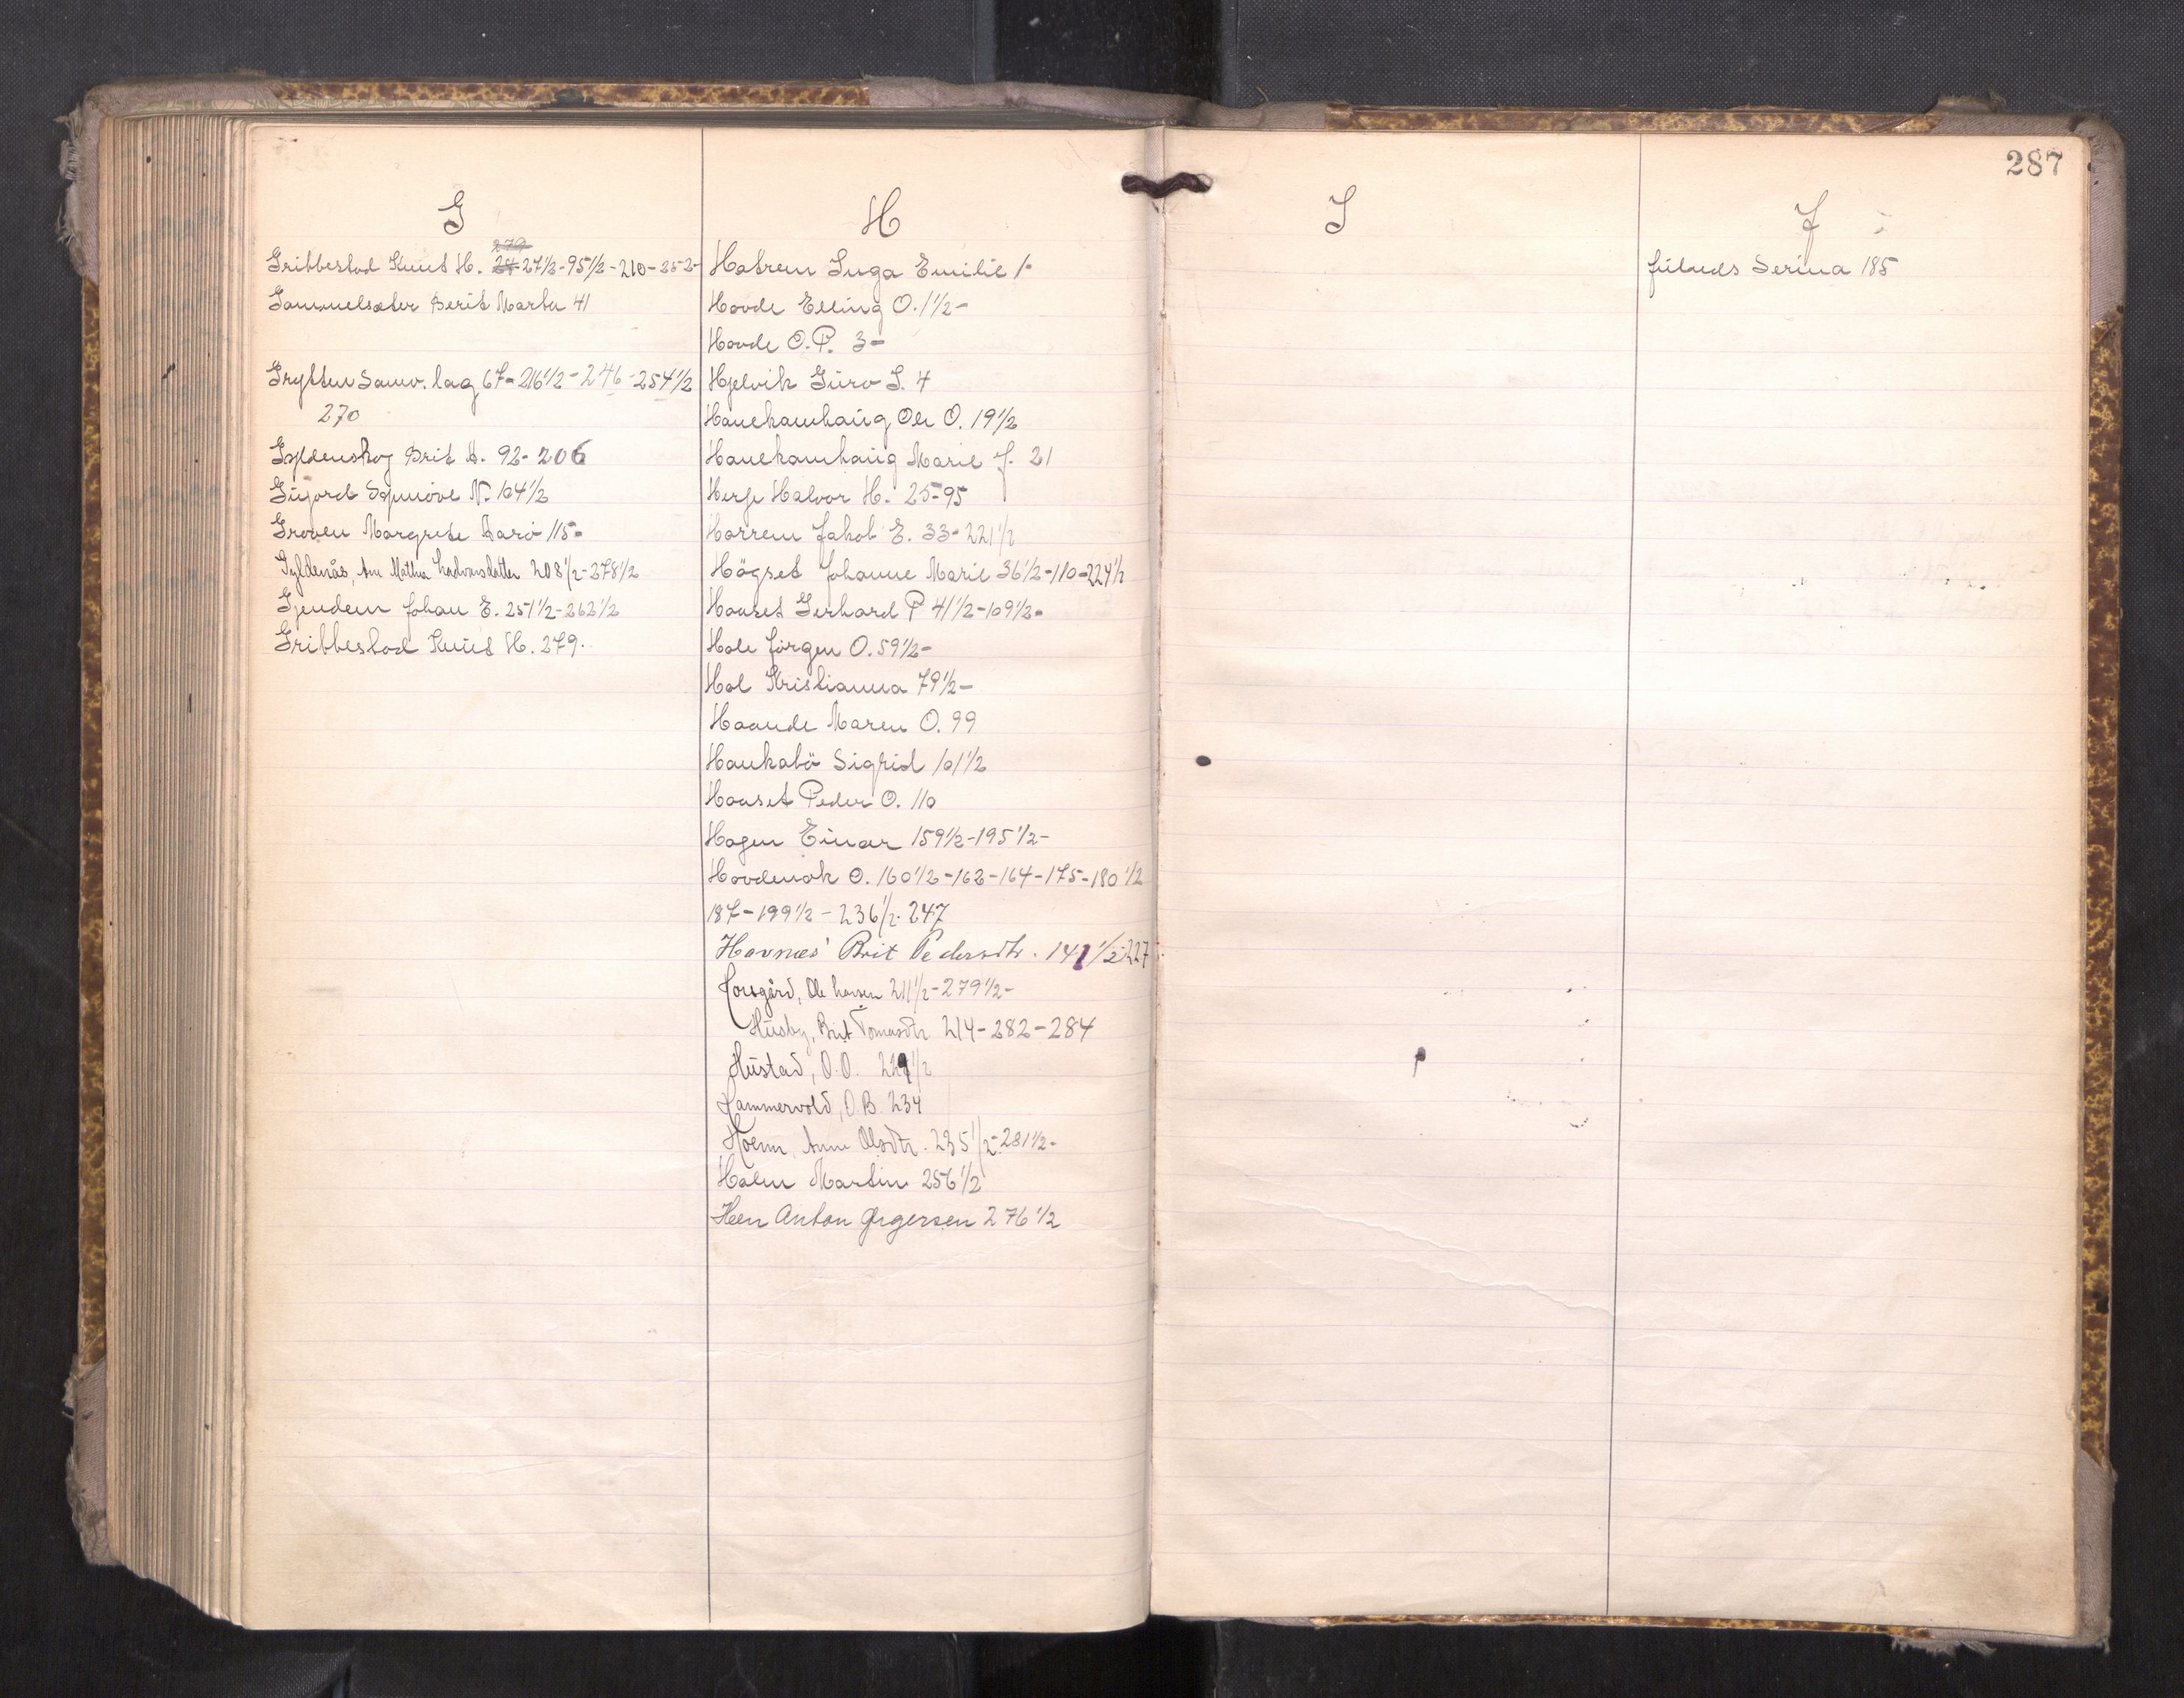 G
Gribbestad Knut H. 27 1/2-95 1/2-210-252-
Gammelsæter Berit Marta 41
Grytten Samv. lag 67-216 1/2-246-254 1/2
270
Gyldenskog Brit A. 92-206
Gujord Synnöve N. 104 1/2
Groven Margrete 115-
Gyldenås, Ane Mathea 208 1/2-278 1/2
Gjendem Johan E. 251 1/2-262 1/2
Gribbestad Knut H. 279.
H
Hatrem Inga Emilie 1-
Hovde Elling O. 1 1/2-
Hovde O.P. 3-
Hjelvik Guro I. 4
Hanekamhaug Ole O. 19 1/2
Hanekamhaug Marie J. 21
Herje Halvor H. 25-95
Harrem Jakob E. 33-221 1/2
Högset Johanne Marie 36 1/2-110-224 1/2
Hauset Gerhard P 41 1/2-109 1/2-
Hole Jörgen O. 59 1/2-
Hol Kristianna 79 1/2-
Haande Maren O. 99
Haukabö Sigrid 101 1/2
Hauset Peder O. 110
Hagen Einar 159 1/2-195 1/2-
Hovdenak O. 160 1/2-162-164-175-180 1/2
187-199 1/2-236 1/2-247
Havnes Brit Pedersdtr. 141 1/2-227
Horsgård, Ole Larsen 211 1/2-279 1/2-
Husby, Brit Tomasdtr 214-282-284
Hustad, O.O. 229 1/2
Hammervold, O.B. 234
Holm, Anne Olsdtr. 235 1/2-281 1/2-
Holm Martin 256 1/2
Hen Anton Jrgersen 276 1/2
I
J
Julnes Serina 185
287